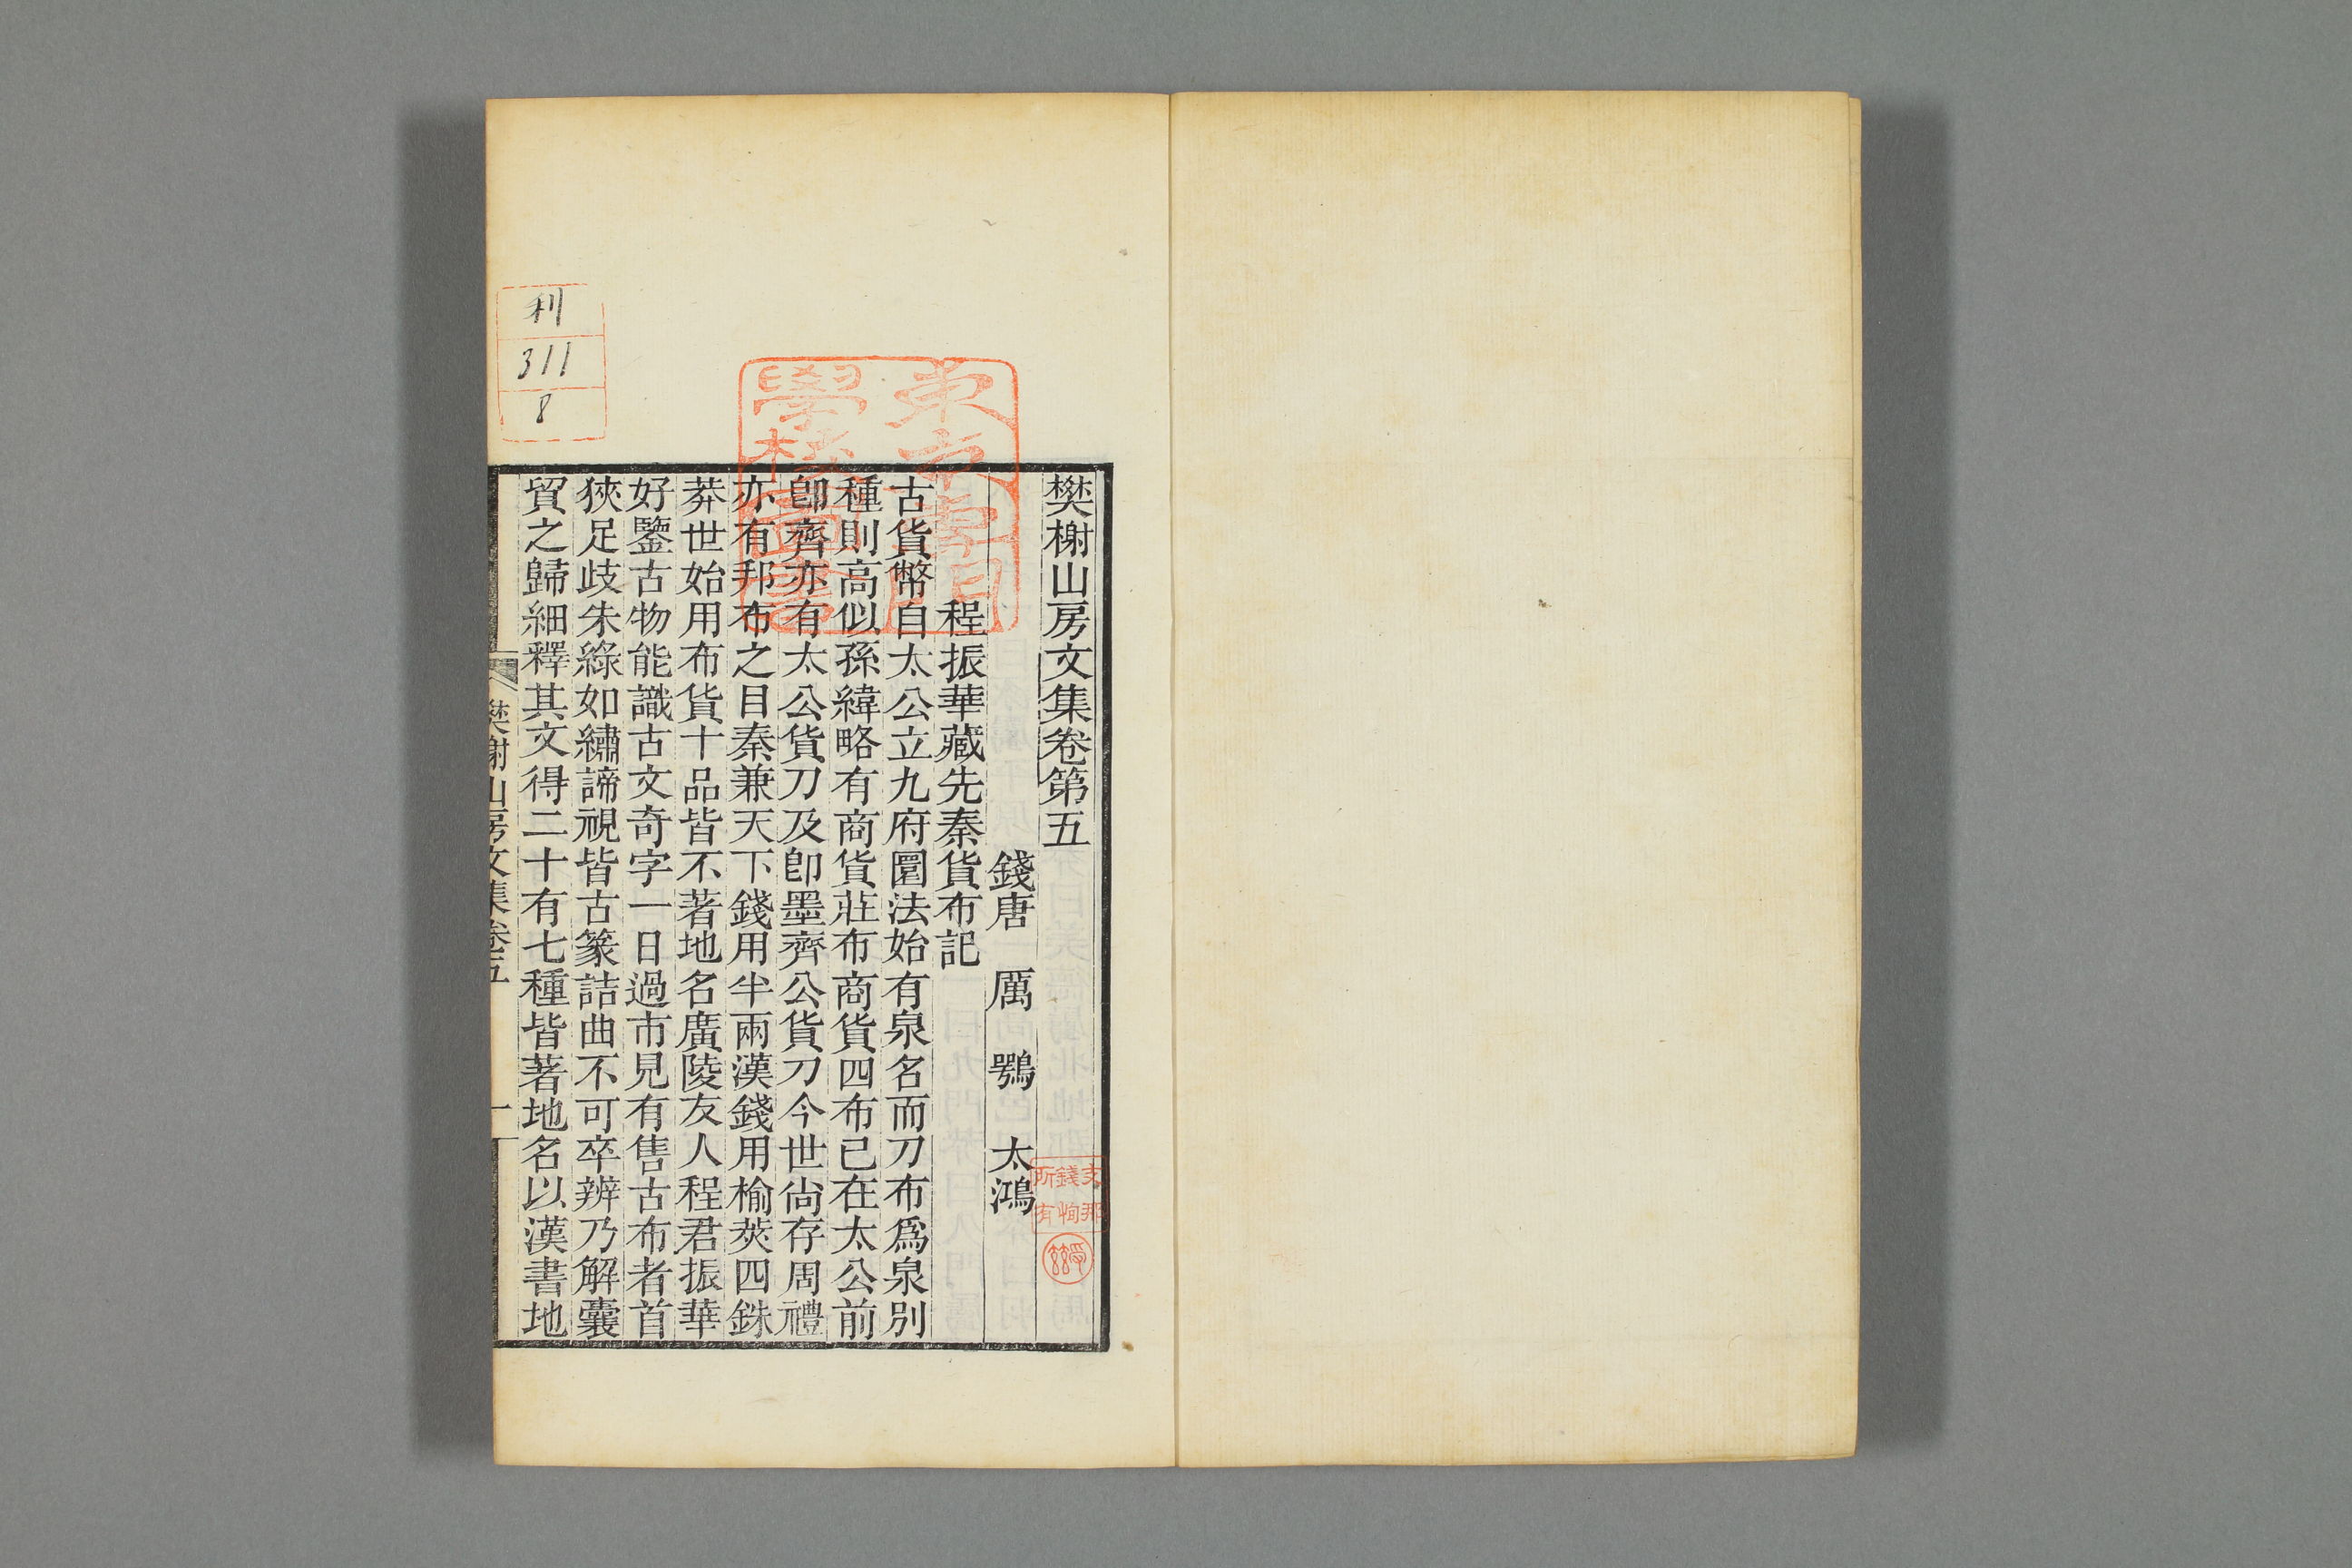 樊榭山房文集卷第五
錢唐 厲 鶚 太鴻
程振華藏先秦貨布記
古貨幣自太公立九府圜法始有泉名而刀布爲泉別
種則高似孫緯略有商貨莊布商貨四布已在太公前
卽齊亦有太公貨刀及卽墨齊公貨刀今世尙存周禮
亦有邦布之目秦兼天下錢用半兩漢錢用楡莢四銖
莽世始用布貨十品皆不著地名廣陵友人程君振華
好鑒古物能識古文奇字一日過市見有售古布者首
狹足歧朱綠如繡諦視皆古篆詰曲不可卒辨乃解囊
貿之歸細釋其文得二十有七種皆著地名以漢書地
樊榭山房文集卷五
一
利
311
8
東方專門
學校圖書
支那
錢恂
所有